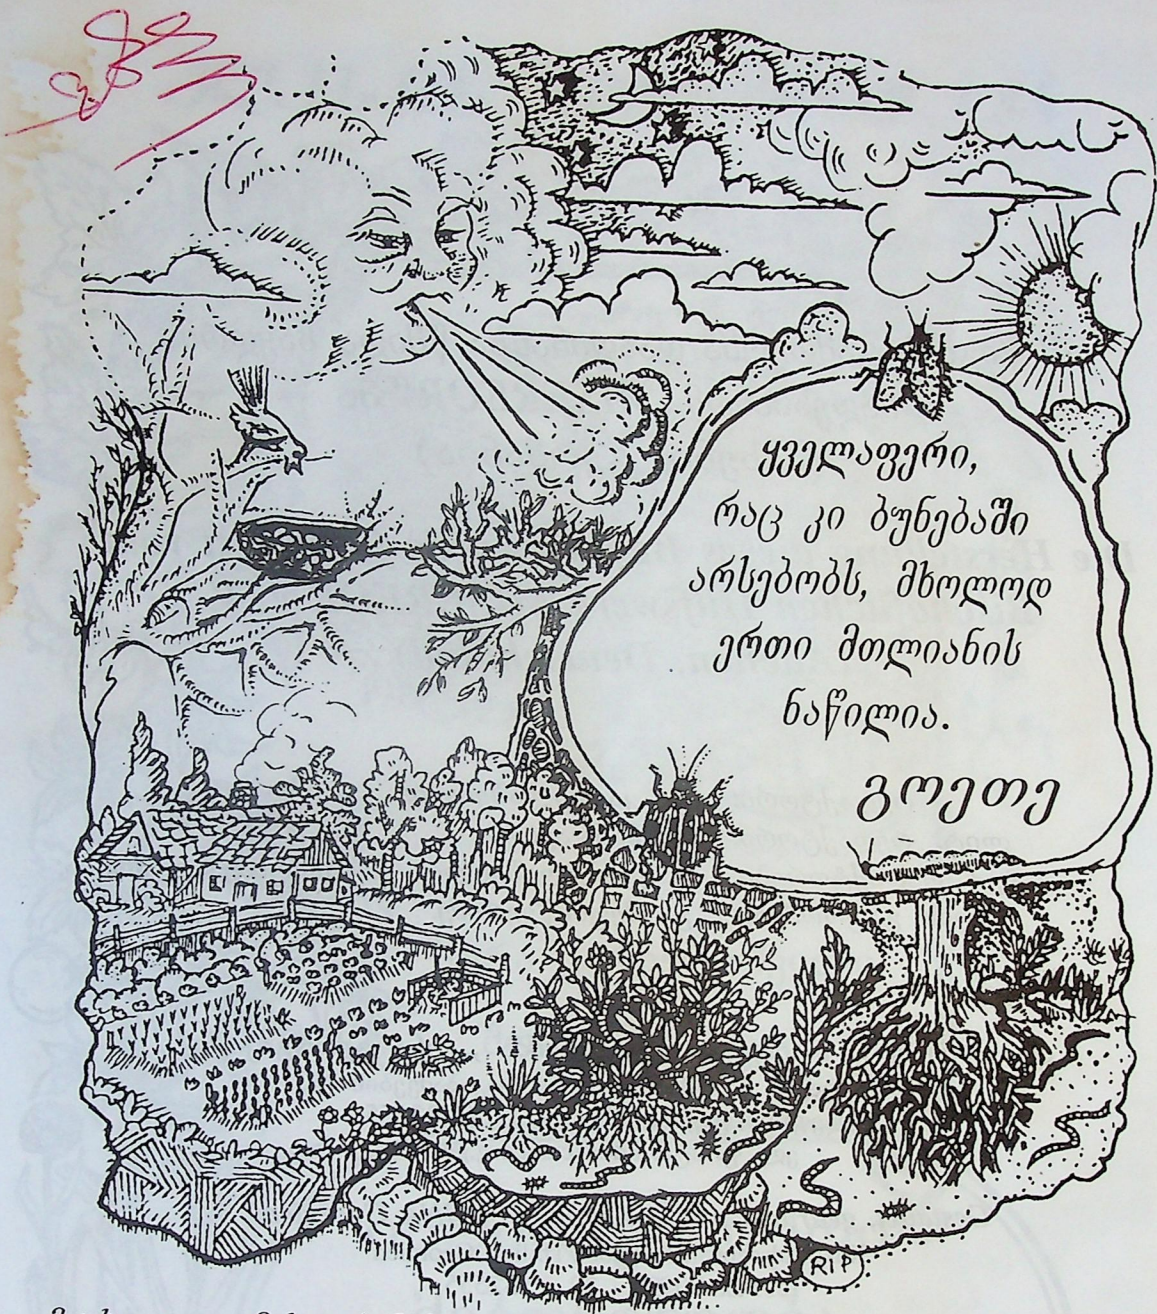 ყველაფერი,
რაც კი ბუნებაში
არსებობს, მხოლოდ
ერთი მთლიანის
ნაწილია.
გოეთე
RIP